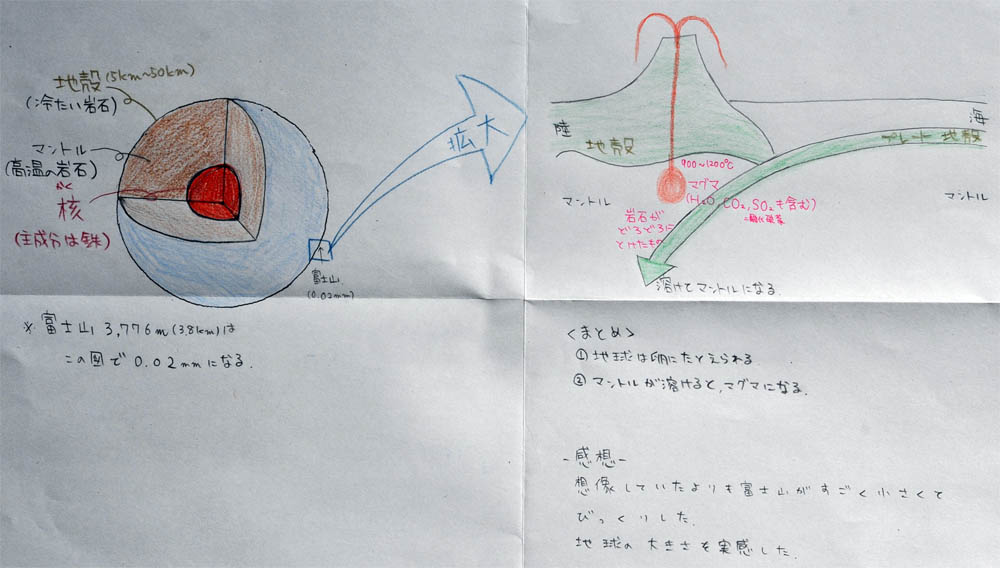 地殻 (5km~50km)
(冷たい岩石)
マントル
(高温の岩石)
かく
核
(主成分は鉄)
拡大
富士山
(0.02mm)
※富士山 3,776m (3.8km)は
この図で 0.02mmになる.
陸
海
地殻
プレート 地殻
900~1200℃
マグマ
(H₂O, CO₂, SO₂も含む)
マントル
マントル
岩石が
どろどろに
とけたもの
溶けてマントルになる.
<まとめ>
①地球は卵にたとえられる.
②マントルが溶けると,マグマになる.
-感想-
想像していたよりも富士山がすごく小さくて
びっくりした.
地球の大きさを実感した.